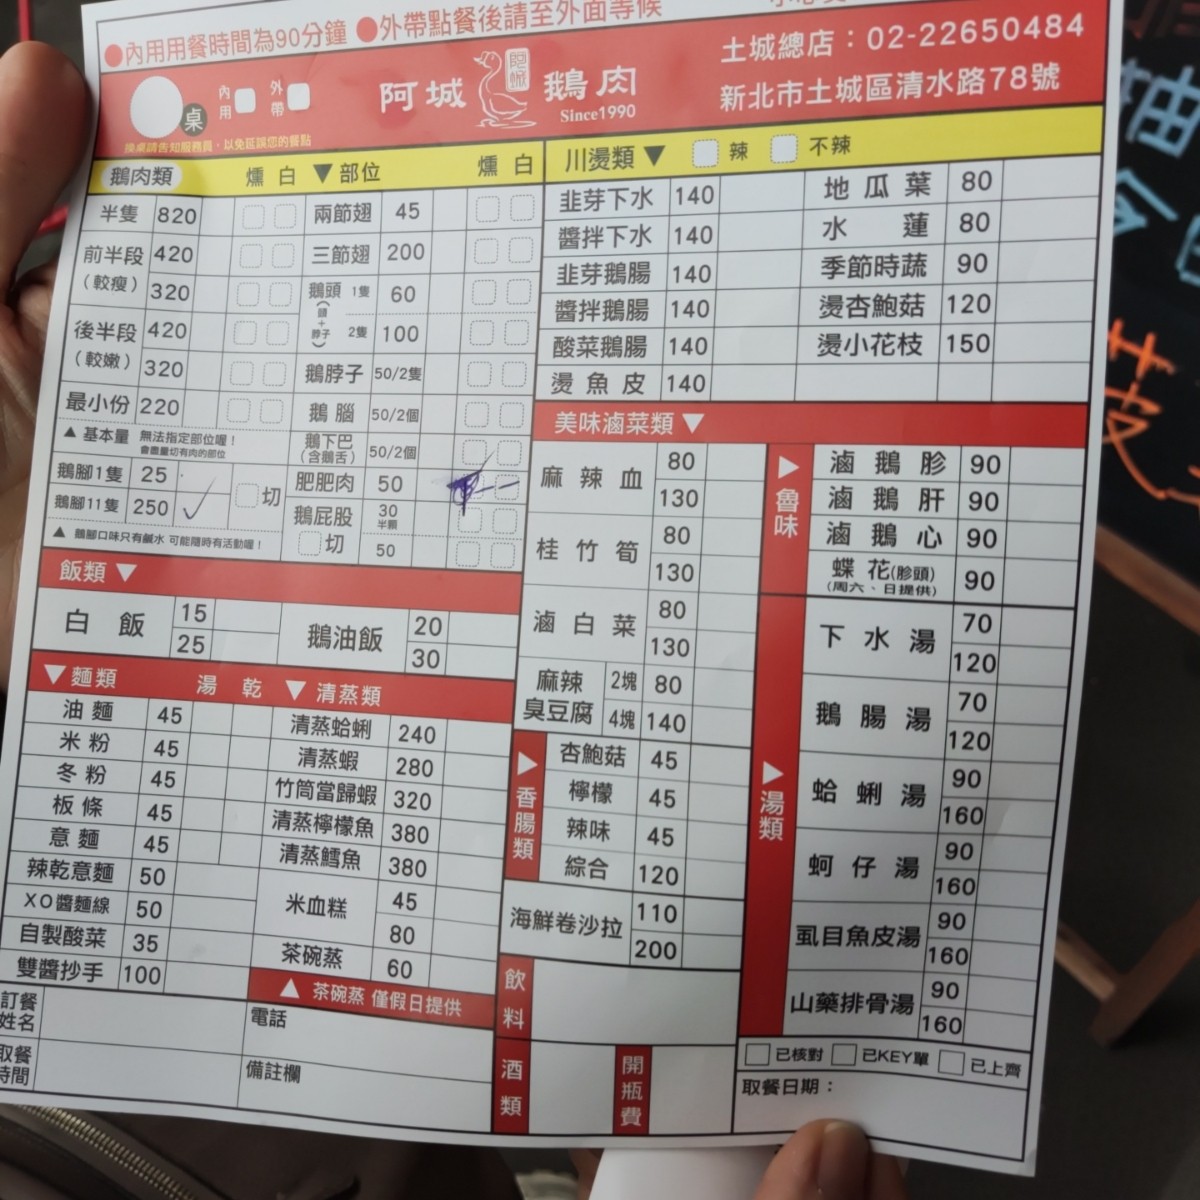 ●內用用餐時間為90分鐘 ●外帶點餐後請至外面等候
桌 內用 外帶
換桌請告知服務員，以免延誤您的餐點
阿城 阿城 鵝肉
Since1990
土城總店：02-22650484
新北市土城區清水路78號
鵝肉類 燻 白 ▼部位 燻 白
半隻 820 兩節翅 45
前半段（較瘦） 420 三節翅 200
320 鵝頭（頭+脖子） 1隻 60
後半段（較嫩） 420 2隻 100
320 鵝脖子 50/2隻
最小份 220 鵝腦 50/2個
▲基本量 無法指定部位喔！
會盡量切有肉的部位
鵝下巴（含鵝舌） 50/2個
鵝腳1隻 25 切 肥肥肉 50
鵝腳11隻 250 ✓ 鵝屁股 30 半顆
切 50
▲ 鵝腳口味只有鹹水 可能隨時有活動喔！
飯類▼
白飯 15 鵝油飯 20
25 30
▼麵類 湯 乾 ▼清蒸類
油麵 45 清蒸蛤蜊 240
米粉 45 清蒸蝦 280
冬粉 45 竹筒當歸蝦 320
板條 45 清蒸檸檬魚 380
意麵 45 清蒸鱈魚 380
辣乾意麵 50 米血糕 45
XO醬麵線 50 80
自製酸菜 35 茶碗蒸 60
雙醬抄手 100
▲ 茶碗蒸 僅假日提供
訂餐姓名 電話
取餐時間 備註欄
川燙類▼ 辣 不辣
韭芽下水 140 地瓜葉 80
醬拌下水 140 水蓮 80
韭芽鵝腸 140 季節時蔬 90
醬拌鵝腸 140 燙杏鮑菇 120
酸菜鵝腸 140 燙小花枝 150
燙魚皮 140
美味滷菜類▼
麻辣血 80
130
桂竹筍 80
130
滷白菜 80
130
麻辣臭豆腐 2塊 80
4塊 140
▶香腸類
杏鮑菇 45
檸檬 45
辣味 45
綜合 120
海鮮卷沙拉 110
200
飲料
酒類 開瓶費
▶魯味
滷鵝胗 90
滷鵝肝 90
滷鵝心 90
蝶花(胗頭) 90
(周六、日提供)
▶湯類
下水湯 70
120
鵝腸湯 70
120
蛤蜊湯 90
160
蚵仔湯 90
160
虱目魚皮湯 90
160
山藥排骨湯 90
160
已核對 已KEY單 已上齊
取餐日期：